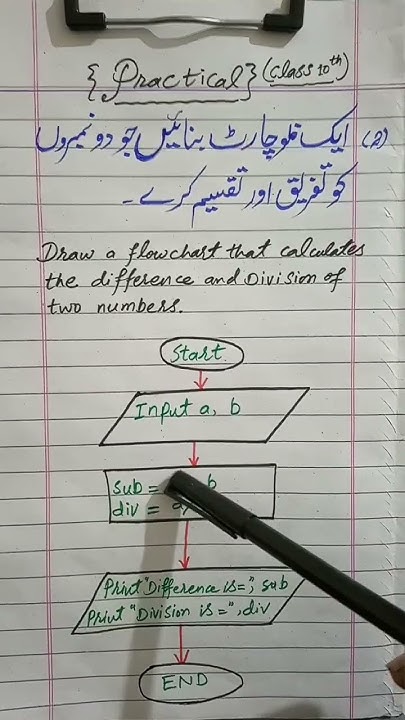 {Practical} (class 10th)
(2) ایک فلوچارٹ بنائیں جو دو نمبروں
کو تفریق اور تقسیم کرے۔
Draw a flowchart that calculates
the difference and Division of
two numbers.
Start
Input a, b
sub = b
div = a
Print "Difference is=", sub
Print "Division is=", div
END